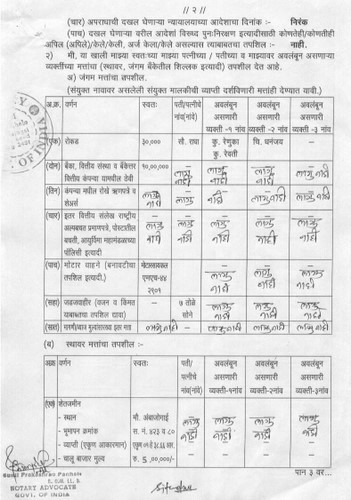 ।। २ ।।
(चार) अपराधाची दखल घेणाऱ्या न्यायालयाच्या आदेशाचा दिनांक :- निरंक
(पाच) दखल घेणाऱ्या वरील आदेशां विरुध्द पुनःनिरक्षण इत्यादीसाठी कोणतेही/कोणतीही
अपिल (अपिले)/केले/केली. अर्ज केला/केले असल्यास त्याबाबतचा तपशिल :- नाही.
२) मी, या खाली माझ्या स्वतःच्या माझ्या पत्नीच्या / पतीच्या व माझ्यावर अवलंबून असणाऱ्या
व्यक्तींच्या मत्तांचा (स्थावर, जंगम बँकेतील शिल्लक इत्यादी) तपशिल देत आहे.
अ) जंगम मत्तांचा तपशील.
(संयुक्त नावावर असलेली संयुक्त मालकीची व्याप्ती दर्शविणारी मत्तांही देण्यात यावी.)
अ.क्र. वर्णन स्वतः पती/पत्नीचे नांव(नांवे) अवलंबून असणारी व्यक्ती -१ नांव अवलंबून असणारी व्यक्ती -२ नांव अवलंबून असणारी व्यक्ती -३ नांव
(एक) रोकड ३०,००० सौ. राधा कु. रेणुका कु. रेवती चि. धनंजय —
(दोन) बँका, वित्तीय संस्था व बँकेत्तर वित्तीय कंपन्या यामधील ठेवी १०,००,००० — लागु नाही लागु नाही लागु नाही
(तिन) कंपन्या मधील रोखे ऋणपत्रे व शेअर्स लागु नाही लागु नाही लागु नाही लागु नाही लागु नाही
(चार) इतर वित्तीय संलेख राष्ट्रीय अल्पबचत प्रमाणपत्रे, पोस्टातील बचती, आयुर्विमा महामंडळाच्या पॉलिसी इत्यादी लागु नाही लागु नाही लागु नाही लागु नाही लागु नाही
(पाच) मोटार वाहने (बनावटीचा तपशील इत्यादी) मोटारसायकल एमएच-४४ २९०१ लागु नाही लागु नाही लागु नाही
(सहा) जडजवाहीर (वजन व किंमत याबाबतचा तपशील द्यावा) — ७ तोळे सोने लागु नाही लागु नाही लागु नाही
(सात) लागु नाही लागु नाही लागु नाही लागु नाही
(ब) स्थावर मत्तांचा तपशील :-
अ.क्र वर्णन स्वतः पती/पत्नीचे नांव(नांवे) अवलंबून असणारी व्यक्ती-१नांव अवलंबून असणारी व्यक्ती-२नांव अवलंबून असणारी व्यक्ती-३नांव
(एक) शेतजमीन
- स्थान मौ. अंबाजोगाई लागु नाही लागु नाही लागु नाही लागु नाही
- भुमापन क्रमांक स. नं. ४२३ व ८०
- व्याप्ती (एकुण आकारमान)
- चालू बाजार मुल्य रु. 5,00,000/-
पान ३ वर...
NOTARY ADVOCATE
GOVT. OF INDIA